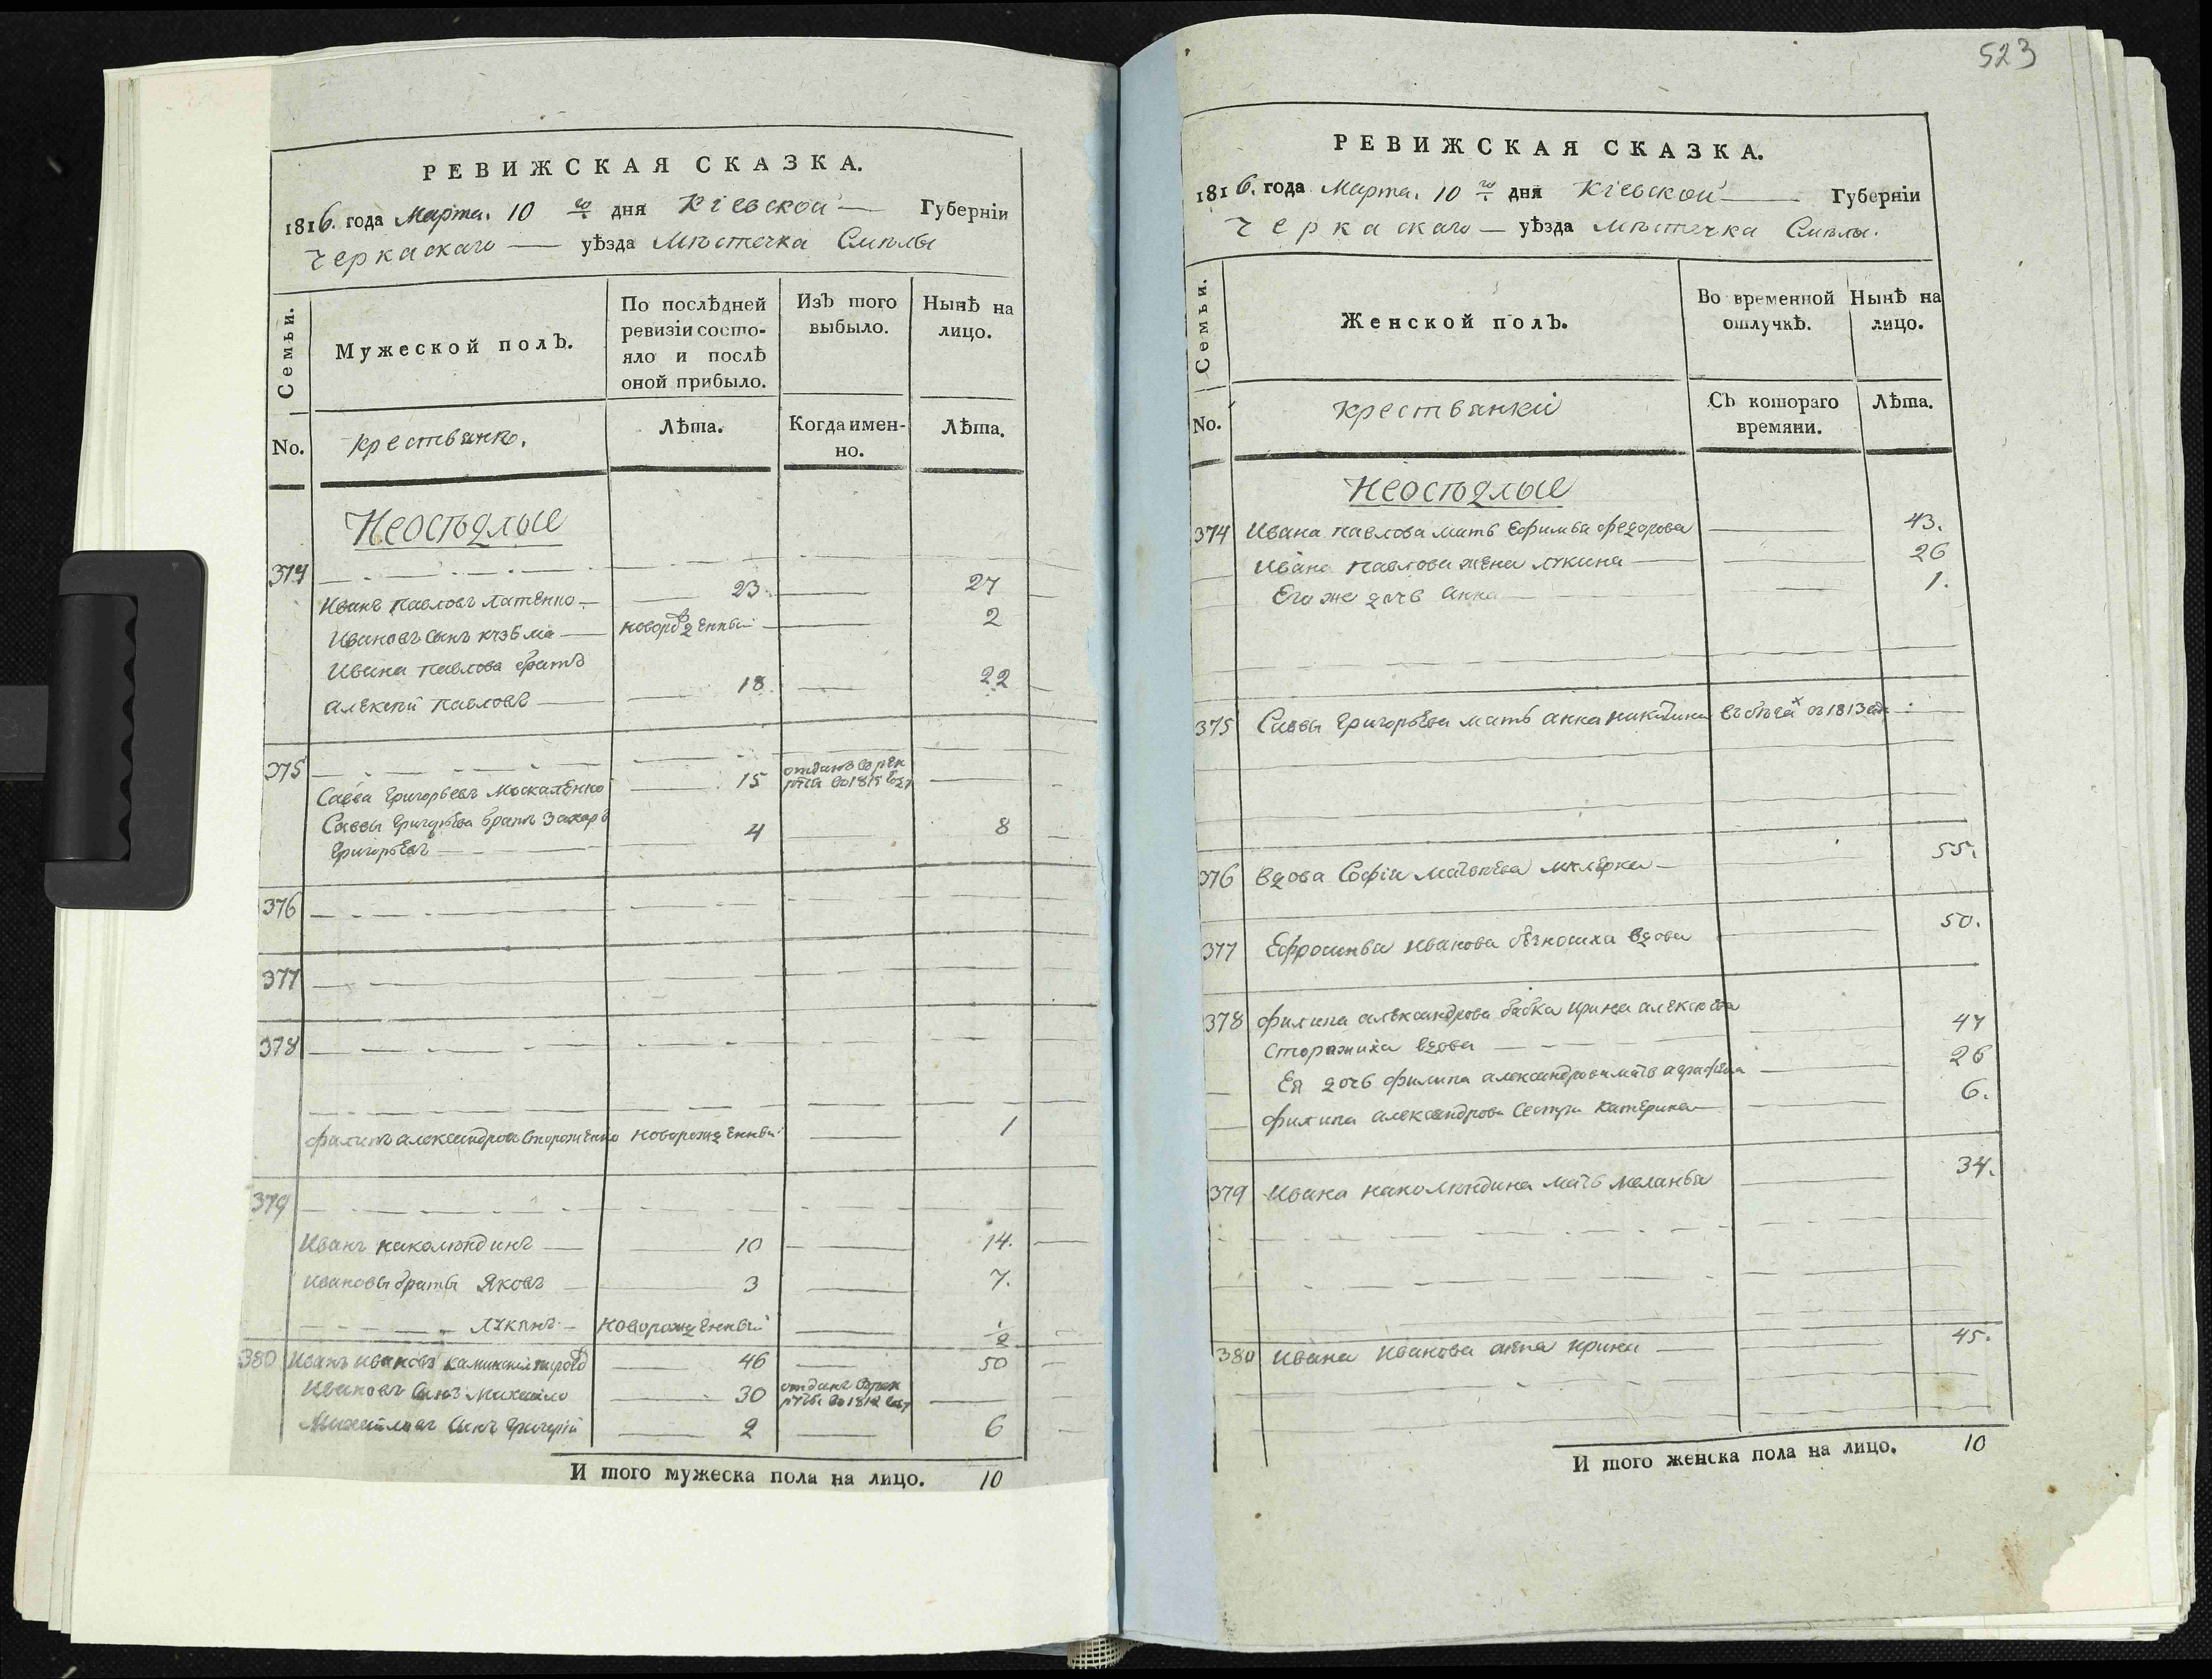 523
РЕВИЖСКАЯ СКАЗКА.
1816. года Марта. 10 го дня Кіевской Губерніи
Черкаскаго уѣзда Мѣстечка Смѣлы
Семьи.
Мужеской полъ.
По послѣдней ревизіи состо-
яло и послѣ
оной прибыло.
Изъ того
выбыло.
Нынѣ на
лицо.
No.
крестьянъ.
Лѣта.
Когда имен-
но.
Лѣта.
Неосѣдлые
374
Иванъ Павловъ 23 27
Ивановъ сынъ Кузьма новорожденный 2
Ивана Павлова братъ
Алексѣй Павловъ 18 22
375
Савва Григорьевъ Москаленко 15 отданъ въ рек
руты во 1815 году
Саввы Григорьева братъ Захаръ
Григорьевъ 4 8
376
377
378
Филипъ Александровъ Стороженко новорожденный 1
379
Иванъ 10 14.
Ивановы братья Яковъ 3 7.
Лукянъ новорожденный 1/2
380 Иванъ Ивановъ 46 50
Ивановъ сынъ Михайло 30 отданъ въ рек
руты во 1812 году
Михайловъ сынъ Григорій 2 6
И того мужеска пола на лицо. 10
РЕВИЖСКАЯ СКАЗКА.
1816. года Марта. 10 го дня Кіевской Губерніи
Черкаскаго уѣзда Мѣстечка Смѣлы.
Семьи.
Женской полъ.
Во временной
отлучкѣ.
Нынѣ на
лицо.
No.
крестьянки
Съ котораго
времяни.
Лѣта.
Неосѣдлые
374 Ивана Павлова мать Ефимья Федорова 43.
Ивана Павлова жена Лукина 26
Его же дочь Анна 1.
375 Саввы Григорьева мать Анна Никитина въ бѣгах съ 1813
376 Вдова Софія Матвѣева 55.
377 Ефросинья Иванова вдова 50.
378 Филипа Александрова бабка Ирина Алексѣева
Сторожиха вдова 47
Ея дочь Филипа Александрова мать Аграфена 26
Филипа Александрова сестра Катерина 6.
379 Ивана мать Меланья 34.
380 Ивана Иванова жена Ирина 45.
И того женска пола на лицо. 10